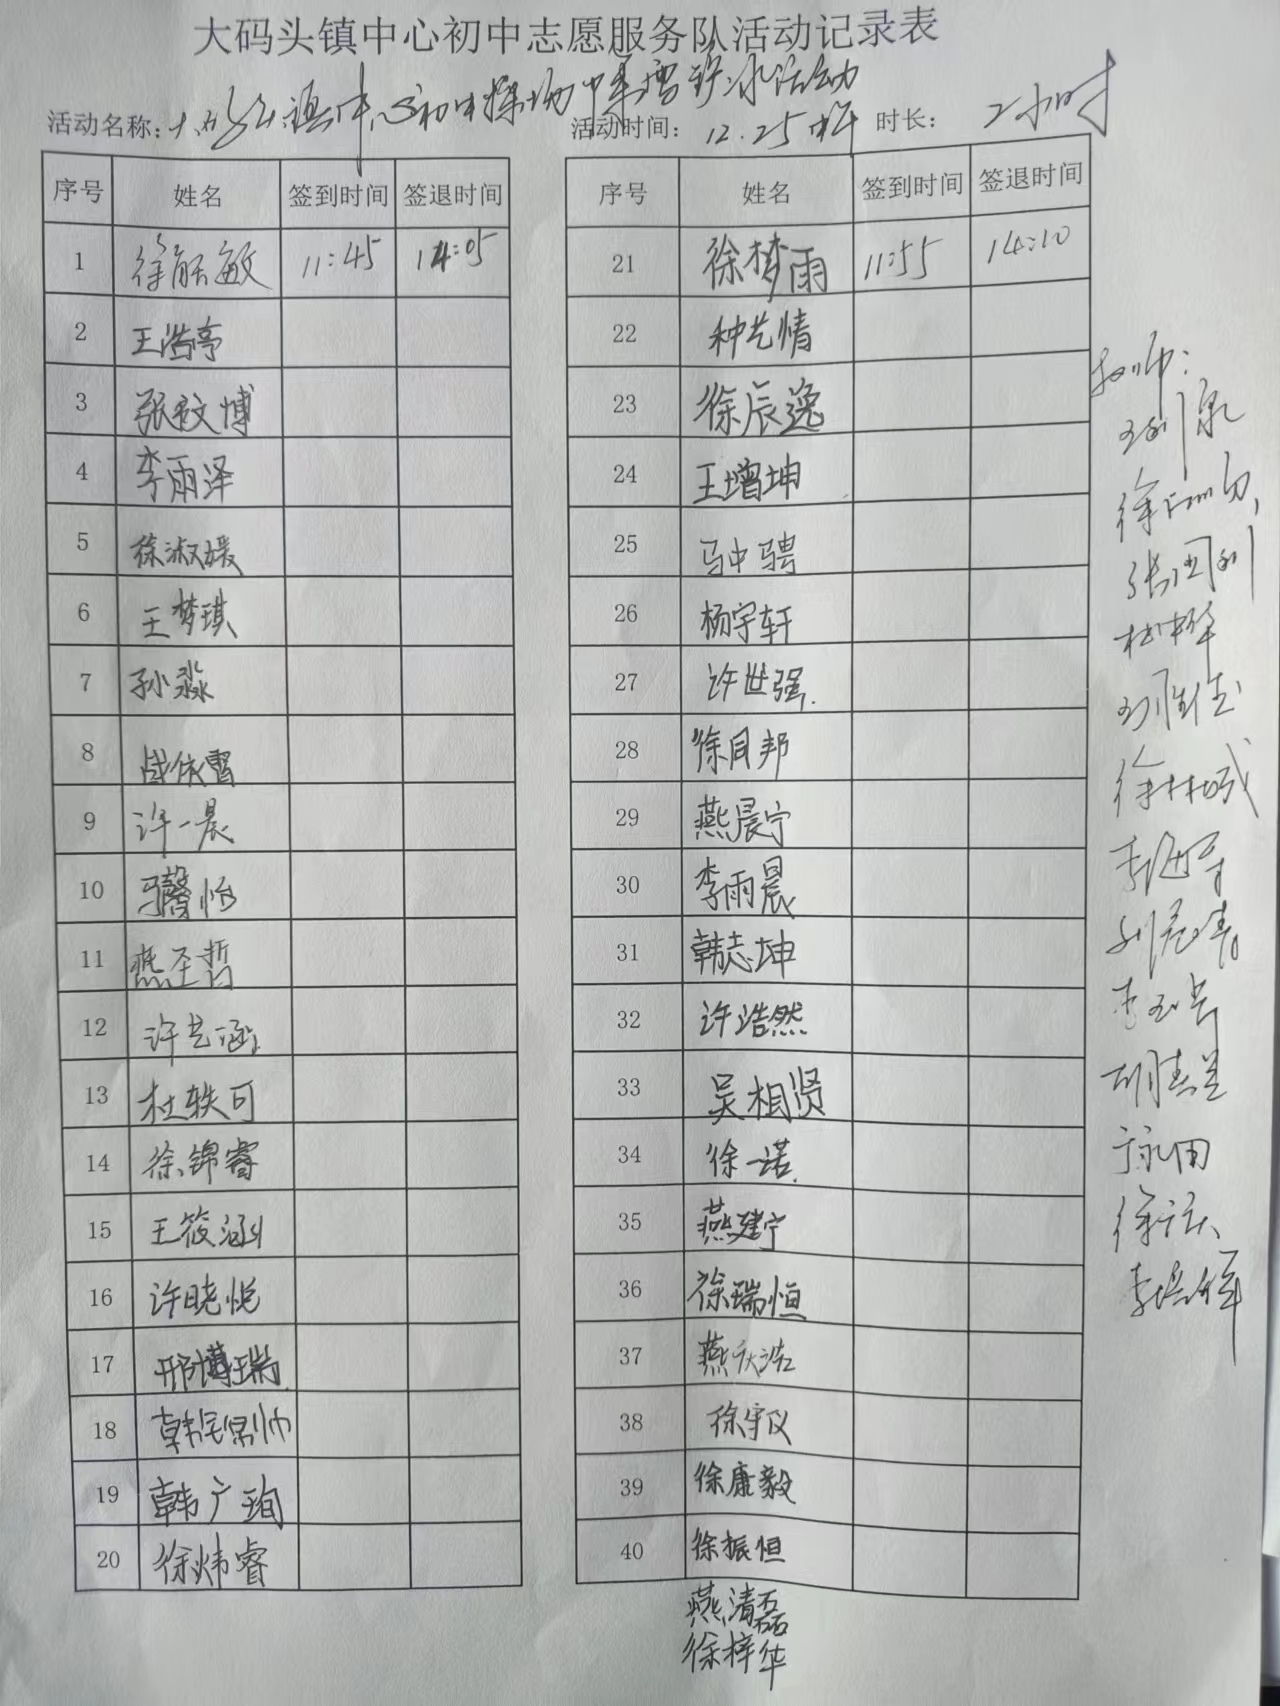 大码头镇中心初中志愿服务队活动记录表
活动名称：大码头镇中心初中操场扫雪铲冰活动
活动时间：12.25中午 时长：2小时
序号 姓名 签到时间 签退时间
1 徐毓敏 11:45 14:05
2 王浩亭
3 张文博
4 李雨泽
5 徐淑媛
6 王梦琪
7 孙淼
8 战依雪
9 许一晨
10 马馨怡
11 燕圣哲
12 许艺涵
13 杜轶可
14 徐锦睿
15 王筱涵
16 许晓悦
17 邢博瑞
18 韩 帅
19 韩广珣
20 徐炜睿
序号 姓名 签到时间 签退时间
21 徐梦雨 11:55 14:10
22 种艺情
23 徐辰逸
24 王增坤
25 马中骋
26 杨宇轩
27 许世强
28 徐同邦
29 燕晨宁
30 李雨晨
31 韩志坤
32 许浩然
33 吴相贤
34 徐一诺
35 燕建宁
36 徐瑞恒
37 燕庆浩
38 徐宇仪
39 徐康毅
40 徐振恒
燕清磊
徐梓华
教师：
徐林城
李海军
胡春兰